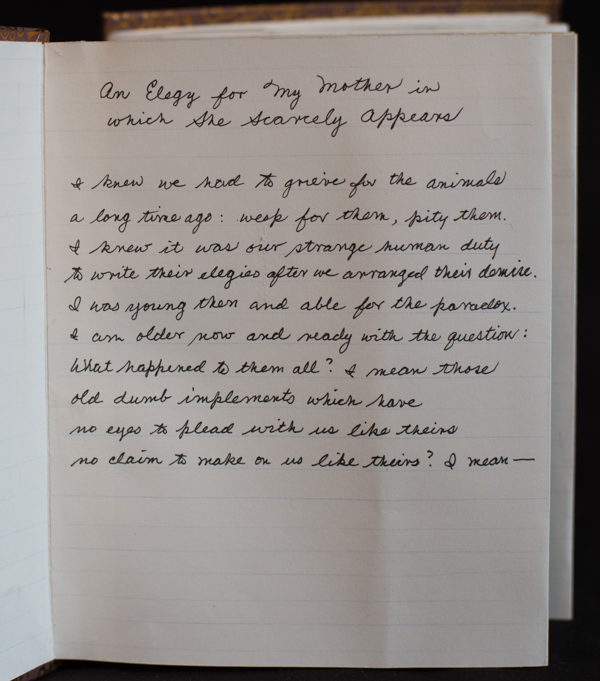 An Elegy for my Mother in
which She Scarcely Appears
I knew we had to grieve for the animals
a long time ago: weep for them, pity them.
I knew it was our strange human duty
to write their elegies after we arranged their demise.
I was young then and able for the paradox.
I am older now and ready with the question:
What happened to them all? I mean those
old dumb implements which have
no eyes to plead with us like theirs
no claim to make on us like theirs? I mean—